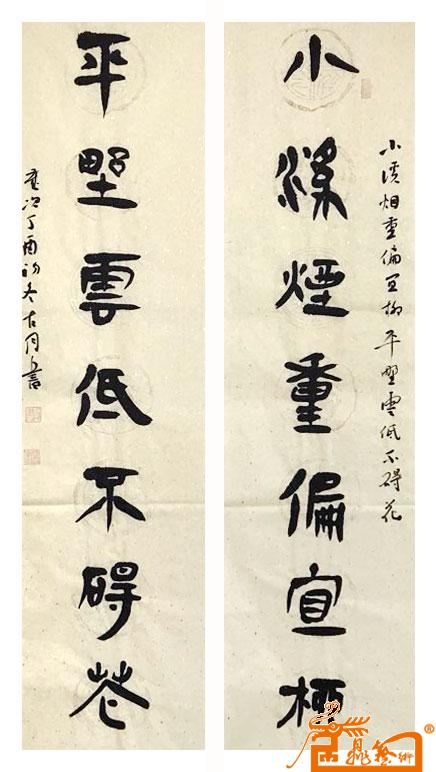 小溪煙重偏宜柳
小溪烟重偏宜柳平野雲低不碍花
平野雲低不碍花
歲次丁酉初冬古月書